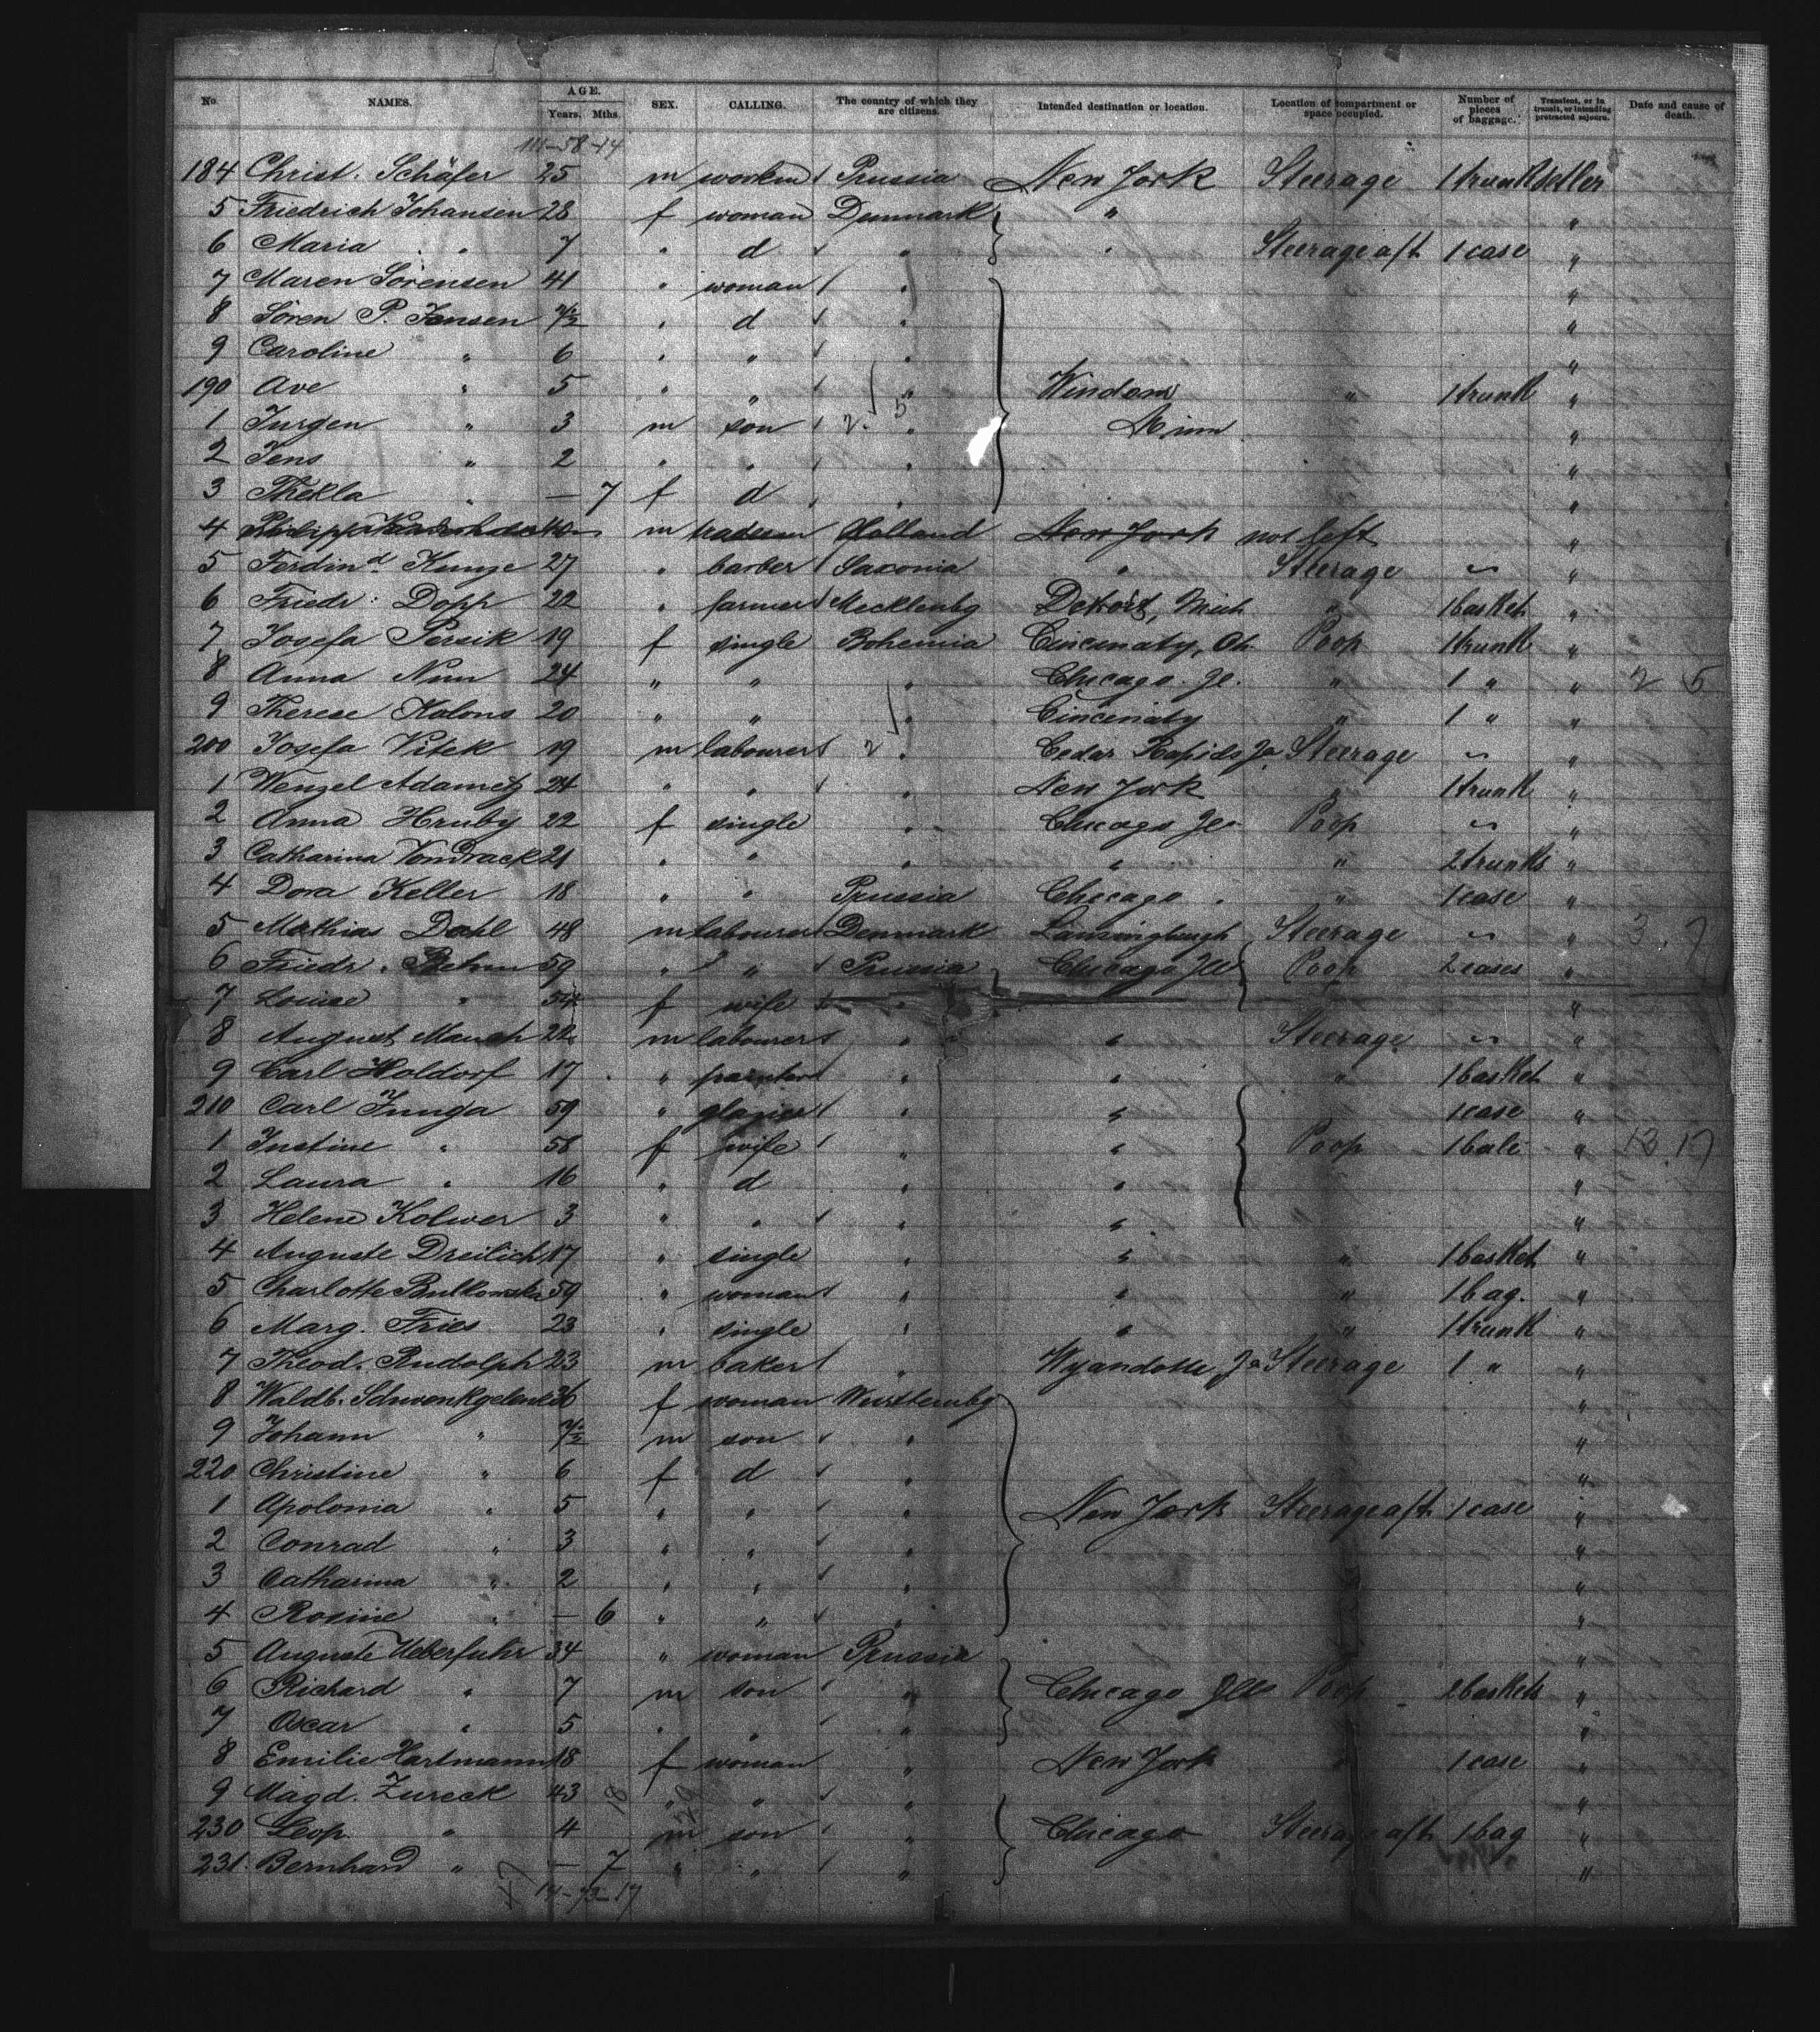 No. NAMES. AGE. Years. Mths. SEX. CALLING. The country of which they are citizens. Intended destination or location. Location of compartment or space occupied. Number of pieces of baggage. Transient, or in transit, or intending protracted sojourn. Date and cause of death.
111-58-14
184 Christ. Schäfer 25 m workm Prussia New York Steerage 1 trunk settler
5 Friedrich Johansen 28 f woman Denmark " "
6 Maria " 7 " d " " Steerage aft 1 case "
7 Maren Sörensen 41 " woman " "
8 Sören P. Jensen 7½ " d " "
9 Caroline " 6 " " " "
190 Ave " 5 " " " Windom " 1 trunk "
1 Jurgen " 3 m son 2. 5 " Minn "
2 Jens " 2 " " " "
3 Thekla " — 7 f d " "
4 Philipp 40 m tradesm Holland New York not left "
5 Ferdind Kunze 27 " barber Saxonia " Steerage ~ "
6 Friedr: Dopp 22 " farmer Mecklenbg Detroit, Mich " 1 basket "
7 Josefa Persik 19 f single Bohemia Cincinaty, Oh. Poop 1 trunk "
8 Anna Nun 24 " " " Chicago. Jl. " 1 " " 2 5
9 Therese Kalons 20 " " " Cincenaty " 1 " "
200 Josefa Vitek 19 m labourer 2 " Cedar Rapids Ja Steerage ~ "
1 Wenzel Adametz 24 " " " New York " 1 trunk "
2 Anna Hruby 22 f single " Chicago Jls Poop ~ "
3 Catharina Vondrack 21 " " " " " 2 trunks "
4 Dora Keller 18 " " Prussia Chicago " " 1 case "
5 Mathias Dahl 48 m labourer Denmark Lansingburgh Steerage ~ " 3. 7
6 Friedr. Rehm 59 " " Prussia Chicago Jll Poop 2 cases "
7 Louise " 54 f wife " "
8 August Manch 22 m labourer " " Steerage ~ "
9 Carl Holdorf 17 " painter " " " 1 basket "
210 Carl Junga 59 " glazier " " 1 case "
1 Justine " 58 f wife " " Poop 1 bale " 13. 17
2 Laura " 16 " d " " "
3 Helene Kolwer 3 " " " " "
4 Auguste Dreilich 17 " single " " " 1 basket "
5 Charlotte Bulkowska 59 " woman " " " 1 bag. "
6 Marg. Fries 23 " single " " " 1 trunk "
7 Theod. Rudolph 23 m baker " Wyandotte, Ja Steerage 1 " "
8 Waldb. Schwenkgelenk 36 f woman Wurttembg "
9 Johann " 7½ m son " "
220 Christine " 6 f d " "
1 Apolonia " 5 " " " New York Steerage aft 1 case "
2 Conrad " 3 " " " "
3 Catharina " 2 " " " "
4 Rosine " — 6 " " " "
5 Auguste Ueberfuhr 34 " woman Prussia "
6 Richard " 7 m son " Chicago Jlls Poop 2 baskets "
7 Oscar " 5 " " " "
8 Emilie Hartmann 18 f woman " New York " 1 case "
9 Magd. Zureck 43 " " " "
230 Leop. " 4 m son " Chicago Steerage aft 1 bag "
231. Bernhard " — 7 " " " "